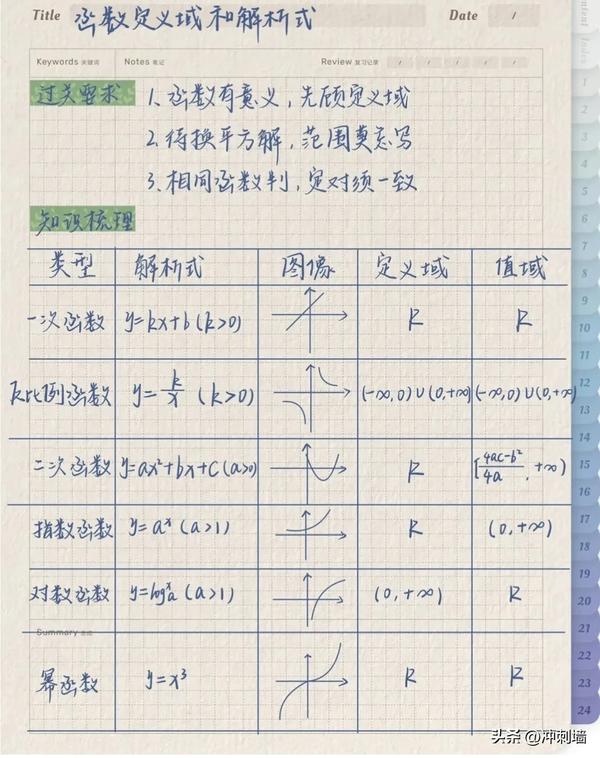 Title 函数定义域和解析式 Date /
Keywords 关键词 Notes 笔记 Review 复习记录 / / / / /
过关要求 1. 函数有意义，先顾定义域
2. 待换平方解，范围莫忘写
3. 相同函数判，定对须一致
知识梳理
类型 解析式 图像 定义域 值域
一次函数 y=kx+b (k>0) R R
反比例函数 y=k/x (k>0) (-∞,0)∪(0,+∞) (-∞,0)∪(0,+∞)
二次函数 y=ax²+bx+c (a>0) R [4ac-b²/4a, +∞)
指数函数 y=aˣ (a>1) R (0,+∞)
对数函数 y=logₐˣ (a>1) (0,+∞) R
Summary 总结
幂函数 y=x³ R R
1
2
3
4
5
6
7
8
9
10
11
12
13
14
15
16
17
18
19
20
21
22
23
24
头条 @冲刺墙